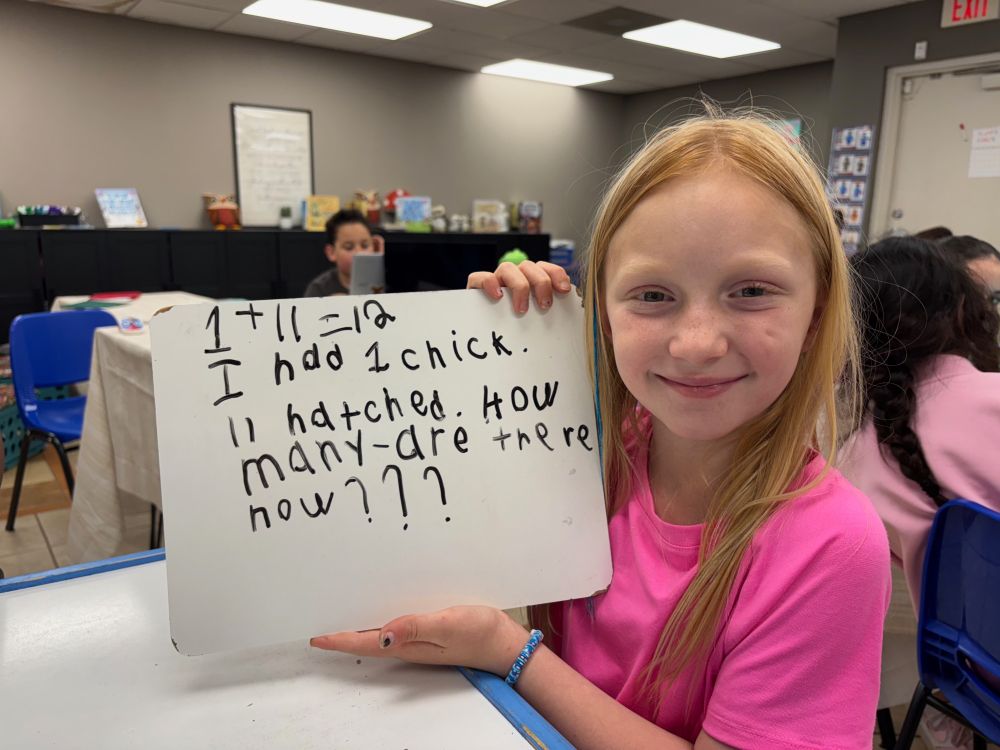 1 + 11 = 12
I had 1 chick.
11 hatched. How
many-are there
now???
EXIT